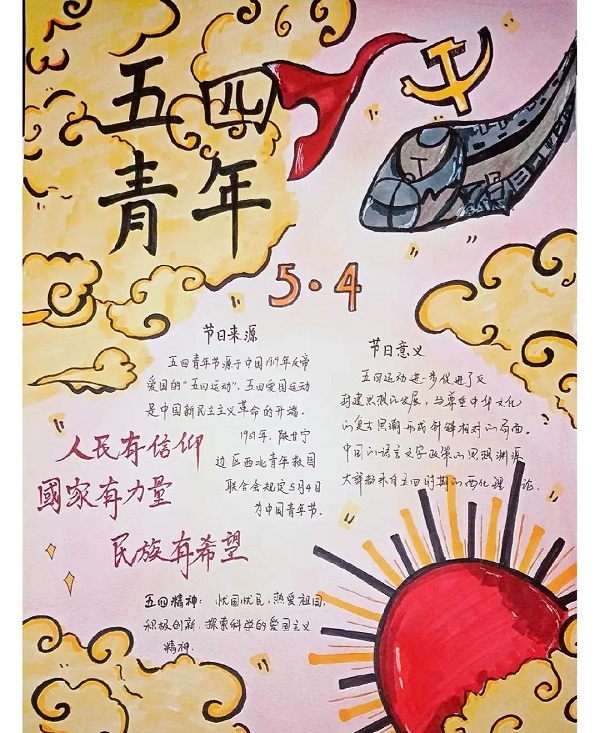 五四
青年
5·4
节日来源
五四青年节源于中国1919年反帝
爱国的“五四运动”,五四爱国运动
是中国新民主主义革命的开端。
1939年,陕甘宁
边区西北青年救国
联合会规定5月4日
为中国青年节。
节日意义
五四运动进一步促进了反
封建思想的发展,与尊重中华文化
的复古思潮形成针锋相对的局面。
中国的语言文字政策的思想渊源
大部都来自五四时期的西化理论。
人民有信仰
國家有力量
民族有希望
五四精神:忧国忧民,热爱祖国,
积极创新,探索科学的爱国主义
精神.